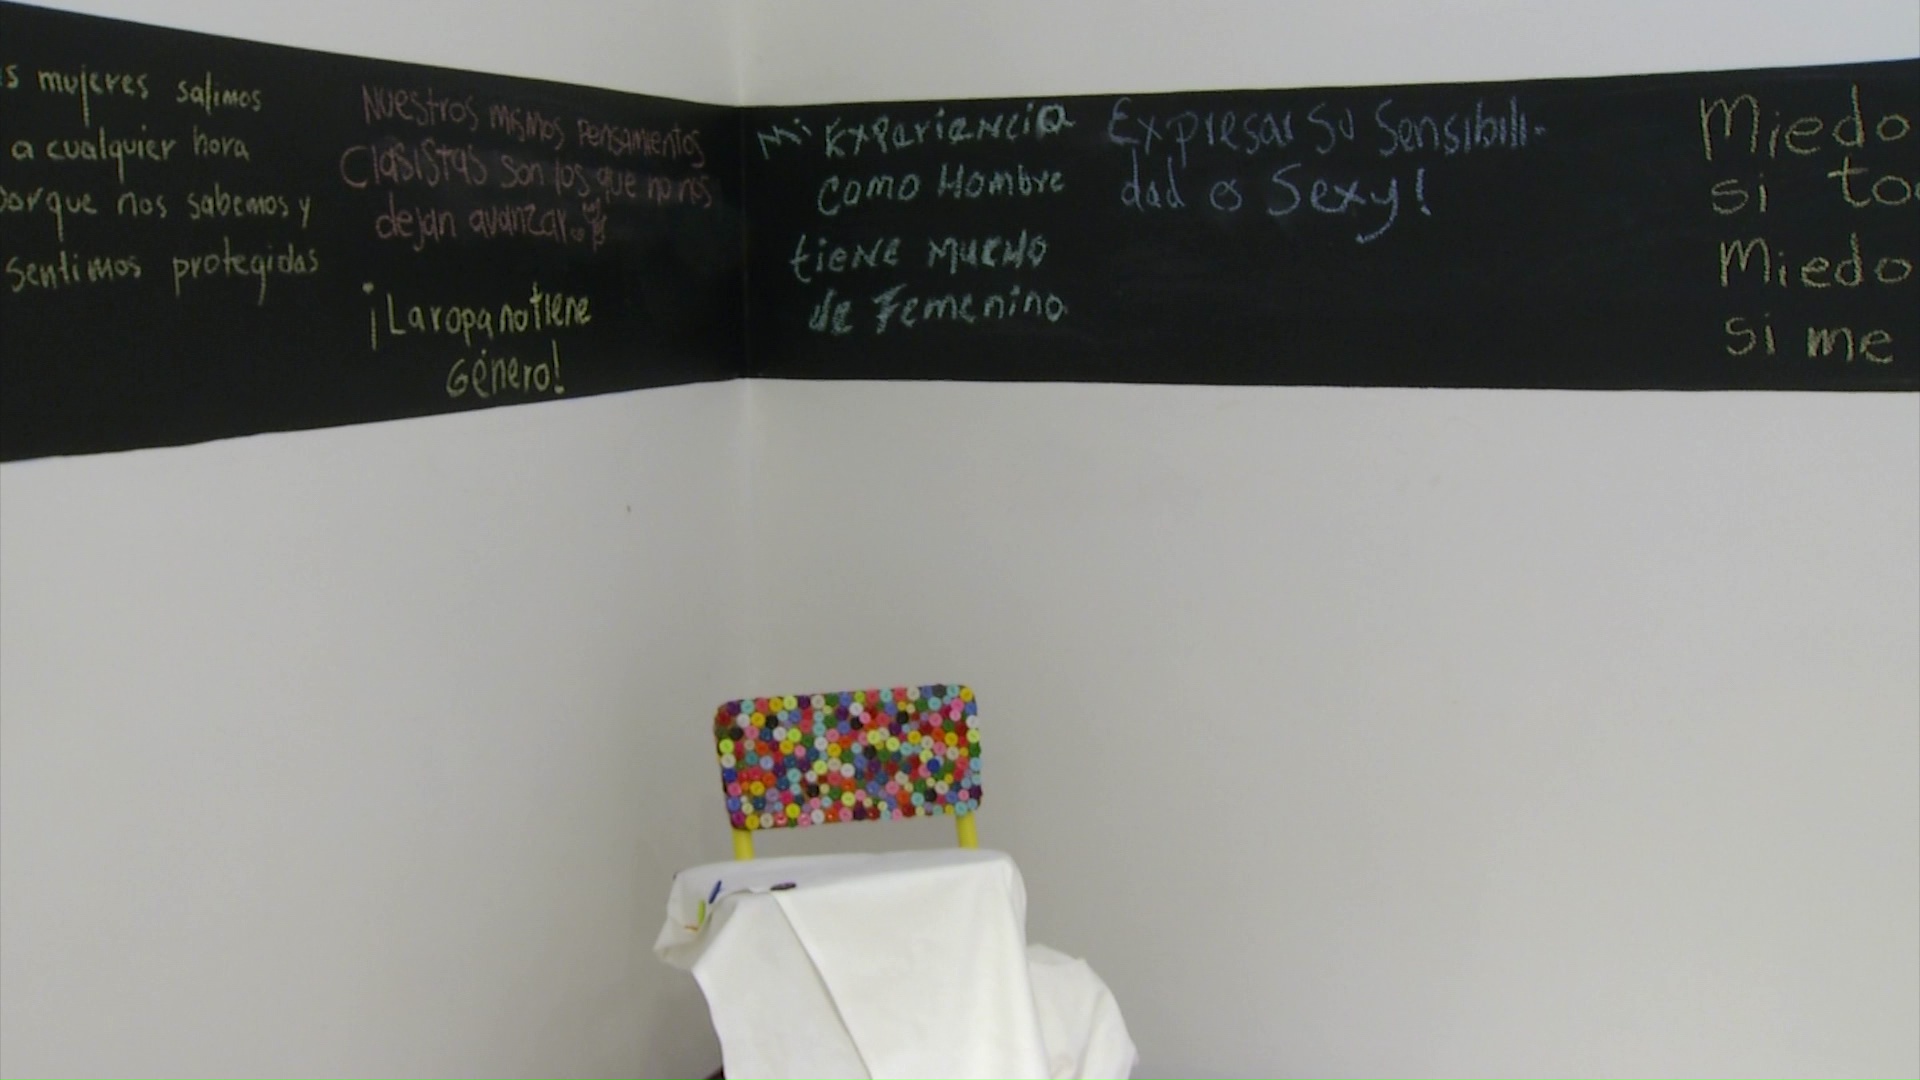 mujeres salimos
a cualquier hora
porque nos sabemos y
sentimos protegidas
Nuestros mismos pensamientos
Clasistas son los que no nos
dejan avanzar.
¡La ropa no tiene
Género!
Mi Experiencia
como Hombre
tiene mucho
de Femenino.
Expresar su Sensibili-
dad es Sexy!
Miedo
si
Miedo
si me